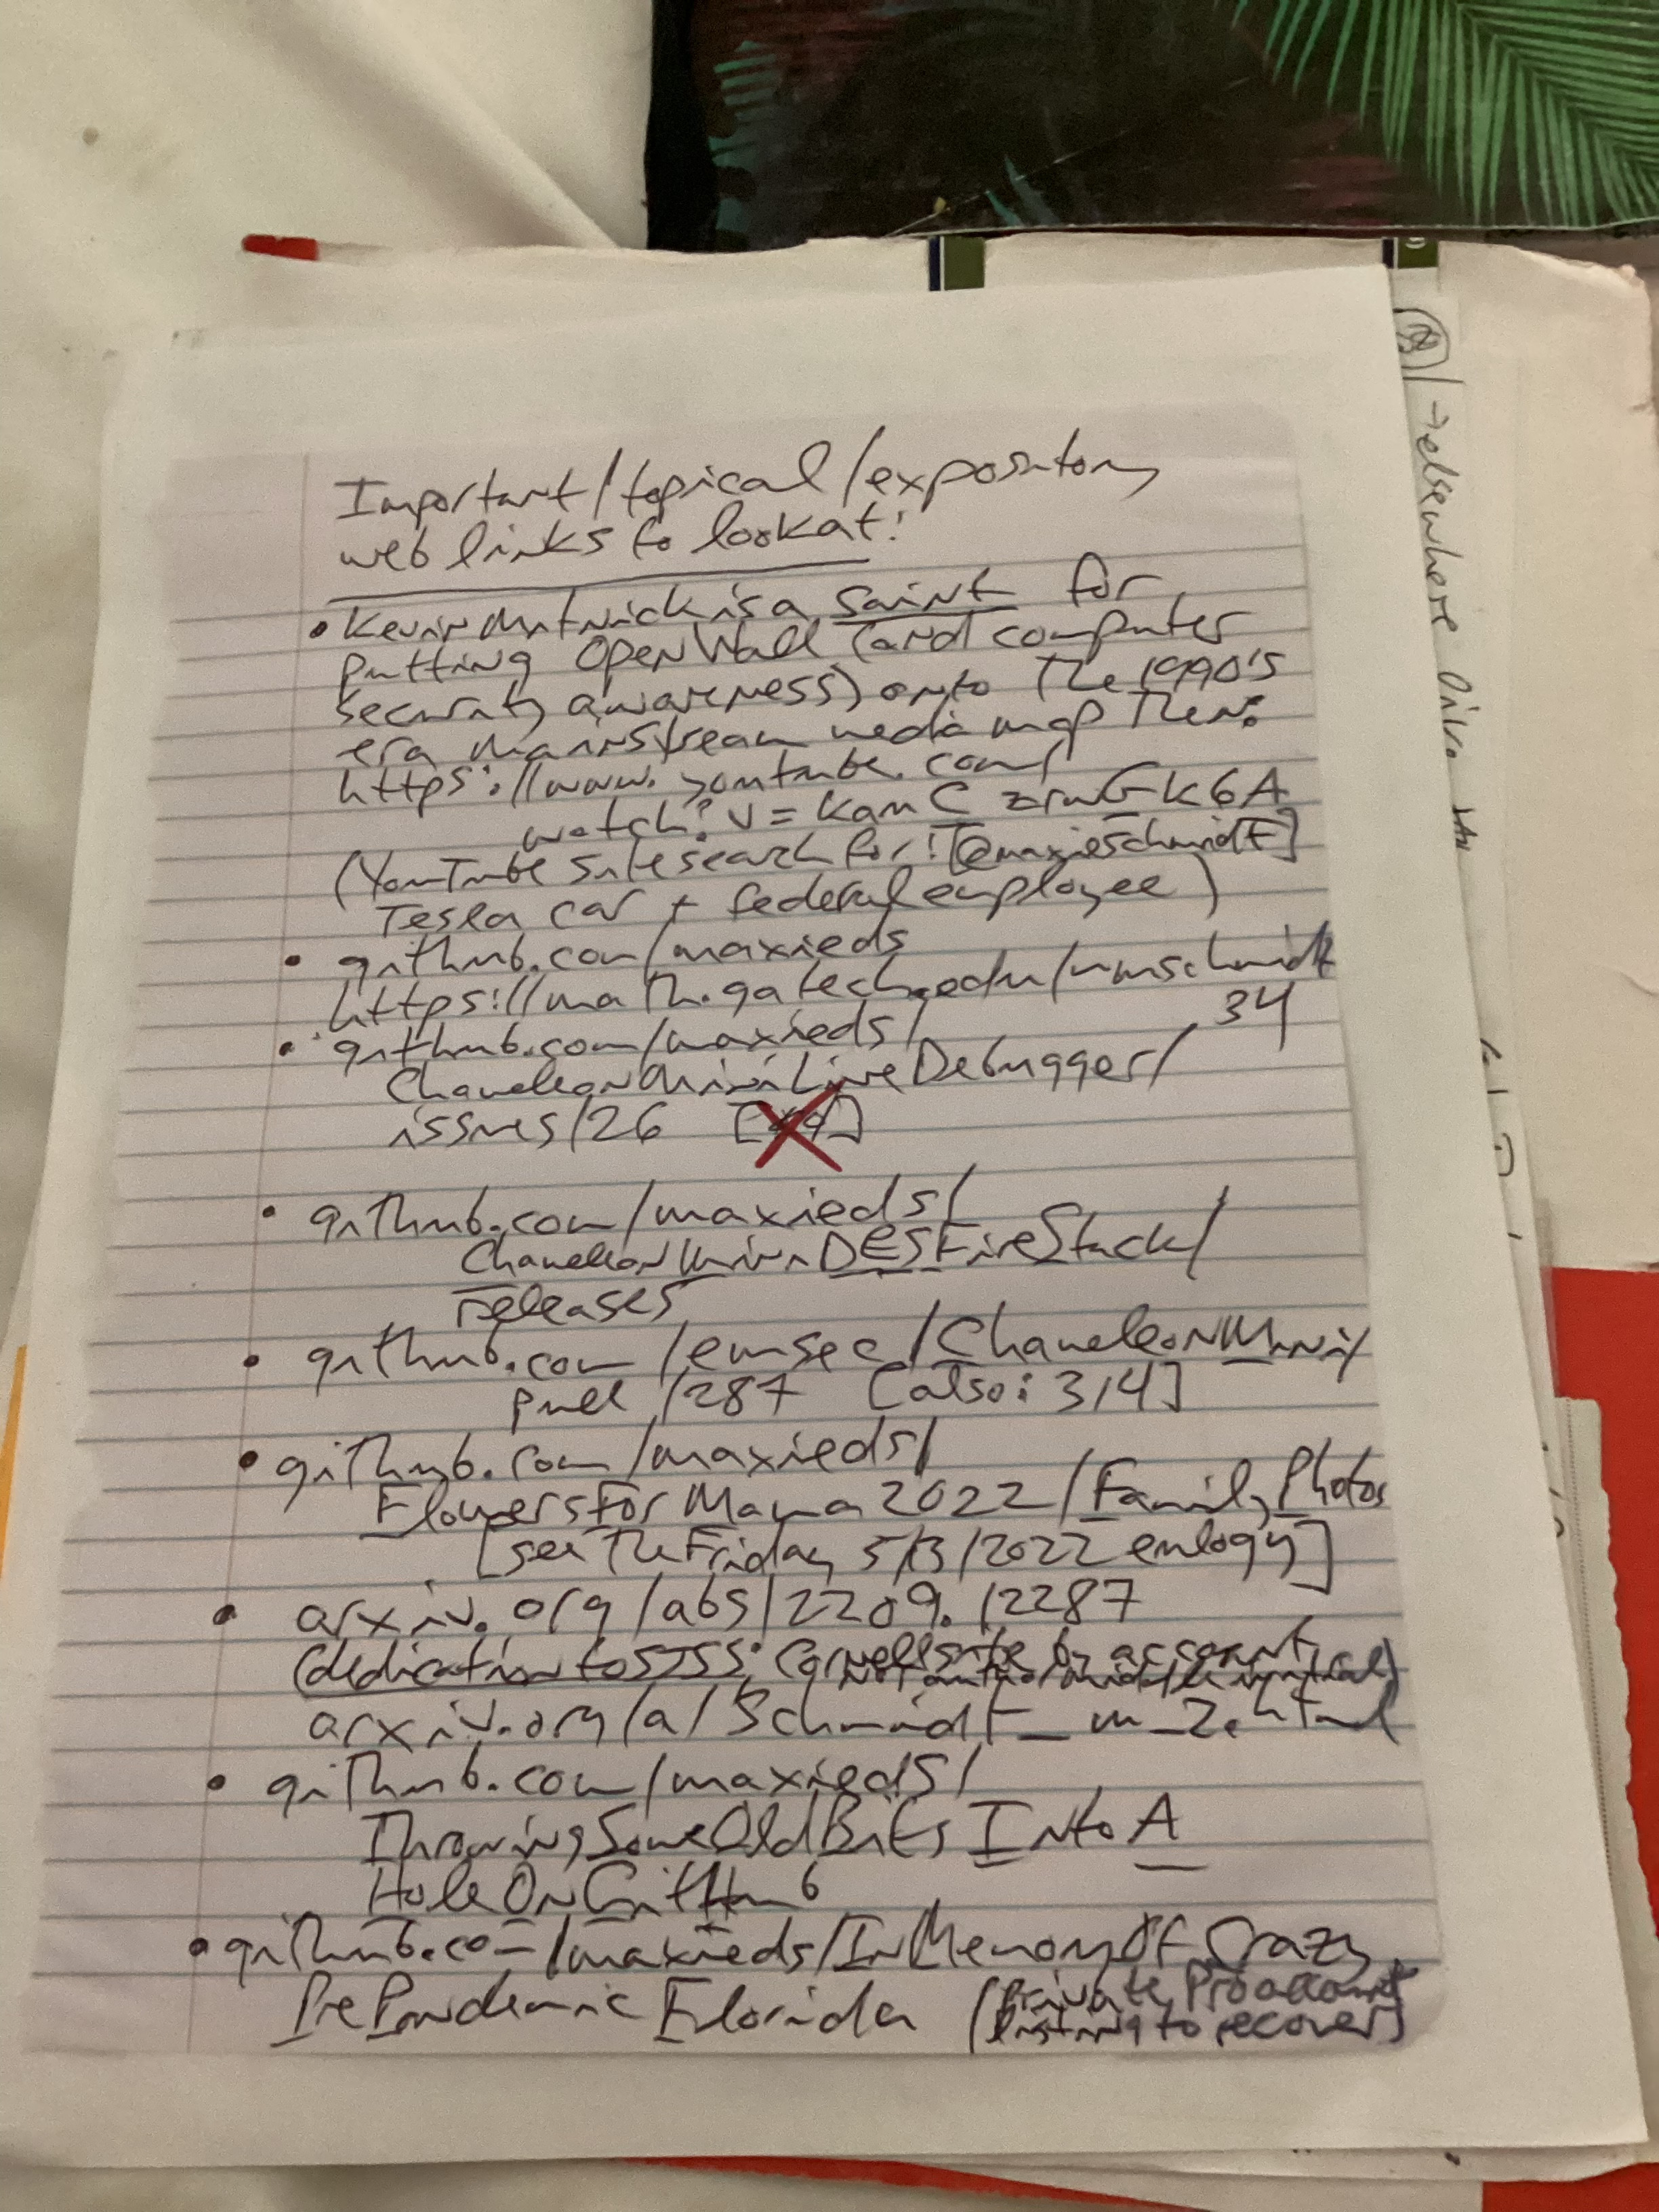 Important/topical/expository
web links to lookat:
• Kevin Mitnick is a saint for
putting OpenWall (and computer
security awareness) onto the 1990's
era mainstream media map then:
https://www.youtube.com/
watch?v=
(YouTube site search for: [@maxieschmidt]
Tesla car + federal employee)
• github.com/maxieds
https://math.gatech.edu/
34
• github.com/maxieds/
ChameleonMiniLiveDebugger/
issues/26
• github.com/maxieds/
ChameleonMiniDESFireStack/
releases
• github.com/emsec/ChameleonMini/
pull/287 [also: 314]
• github.com/maxieds/
FlowersForMama2022/FamilyPhotos
[see the Friday 5/13/2022 eulogy]
• arxiv.org/abs/2209.12287
(dedication to by
arxiv.org/a/Schmidt_m_2.html
• github.com/maxieds/
ThrowingSomeOldBitsIntoA
HoleOnGitHub
• github.com/maxieds/InMemoryOfCrazy
PrePandemicFlorida (Private Pro account
listing to recover)
→ elsewhere